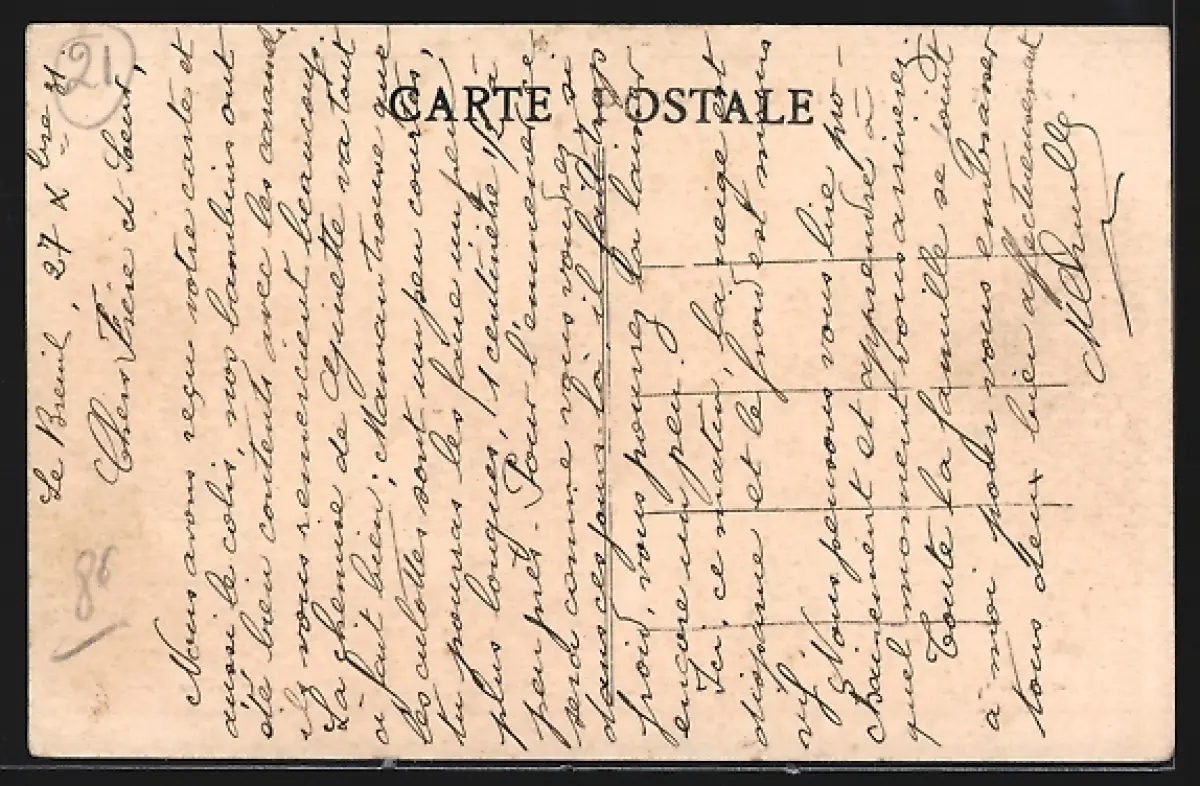 CARTE POSTALE
21
86
Le Breuil, 27 X bre
Chers Frère et Soeur,
Nous avons reçu votre carte et
aussi le colis, nos bambins ont
été bien contents avec les
Ils vous remercient beaucoup.
La chemise de Ginette va tout
à fait bien; Maman trouve que
les culottes sont un peu courtes,
tu pourras les faire un peu
plus longues, 1 centimètre 1/2 à
peu près - Pour l'emmenchure
sera comme vous voudrez si
dans ces jours-là il fait trop
froid, vous pourrez la laisser
encore un peu.
Ici, ce matin, la neige est
disparue et le froid est moins
vif. Nous pensons vous lire pro-
chainement et apprendre à
quel moment vous arriverez
Toute la famille se joint
à moi pour vous embrasser
tous deux bien affectueusement